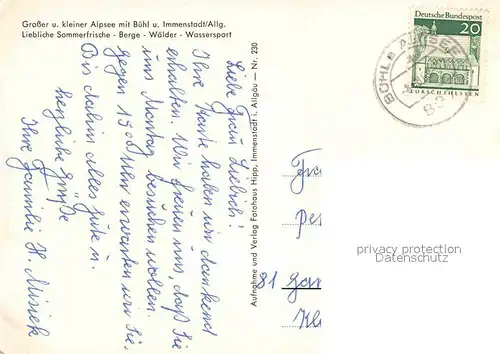 Großer u. kleiner Alpsee mit Bühl u. Immenstadt/Allg.
Liebliche Sommerfrische - Berge - Wälder - Wassersport
Liebe Frau Liebich!
Ihre Karte haben wir dankend
erhalten. Wir freuen uns, daß Sie
uns Montag besuchen wollen.
gegen 15 Uhr erwarten wir Sie.
Bis dahin alles gute u.
herzliche Grüße
Ihre Familie H. Misiek
Aufnahme und Verlag Fotohaus Hipp, Immenstadt i. Allgäu — Nr. 230
Deutsche Bundespost
20
LORSCH/HESSEN
BÜHL a. ALPSEE
897
81
privacy protection
Datenschutz